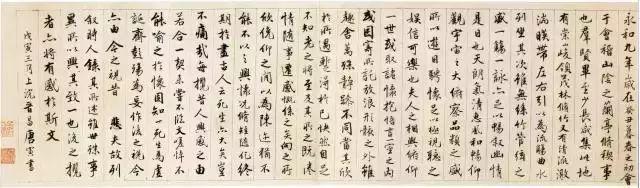 永和九年歲在癸丑暮春之初會
于會稽山陰之蘭亭脩稧事
也羣賢畢至少長咸集此地
有崇山峻領茂林脩竹又有清流激
湍暎帶左右引以為流觴曲水
列坐其次雖無絲竹管弦之
盛一觴一詠亦足以暢敘幽情
是日也天朗氣清惠風和暢仰
觀宇宙之大俯察品類之盛
所以遊目騁懷足以極視聽之
娛信可樂也夫人之相與俯仰
一世或取諸懷抱悟言一室之內
或因寄所託放浪形骸之外雖
趣舍萬殊靜躁不同當其欣
於所遇暫得於己快然自足
不知老之將至及其所之既惓
情隨事遷感慨係之矣向之所
欣俛仰之間以為陳迹猶不
能不以之興懷況脩短隨化終
期於盡古人云死生亦大矣豈
不痛哉每攬昔人興感之由
若合一契未嘗不臨文嗟悼不
能喻之於懷固知一死生為虛
誕齊彭殤為妄作後之視今
亦由今之視昔 悲夫故列
敘時人錄其所述雖世殊事
異所以興懷其致一也後之攬
者亦將有感於斯文
戊寅三月上 晉昌唐寅書